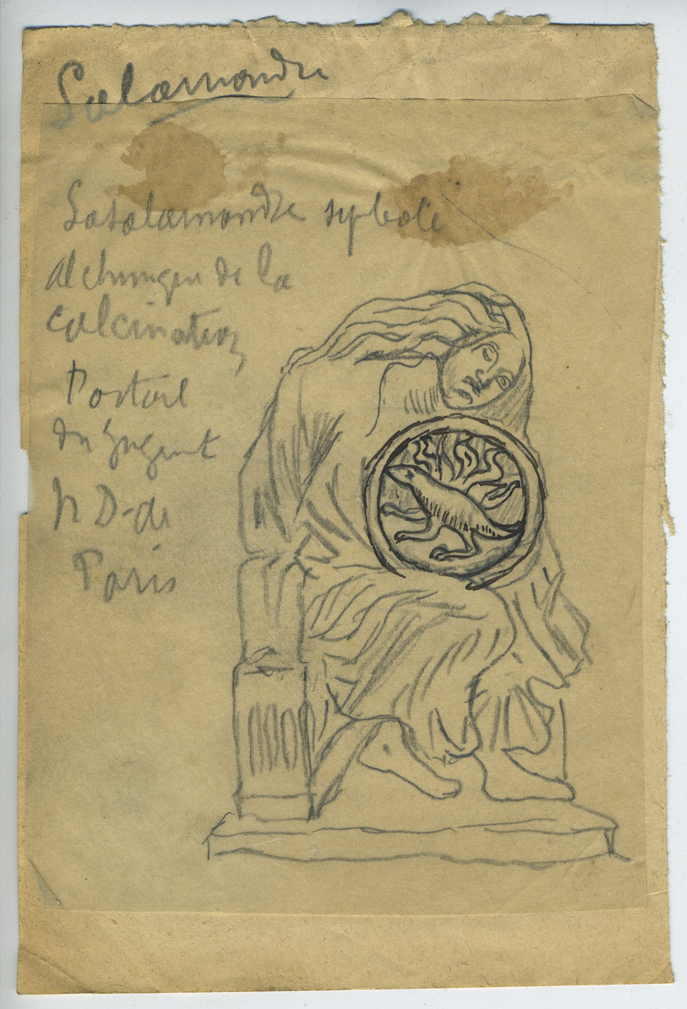 Salamandre
La salamandre sybole
alchimique de la
calcination
Portail
du Jugement
N D-de
Paris